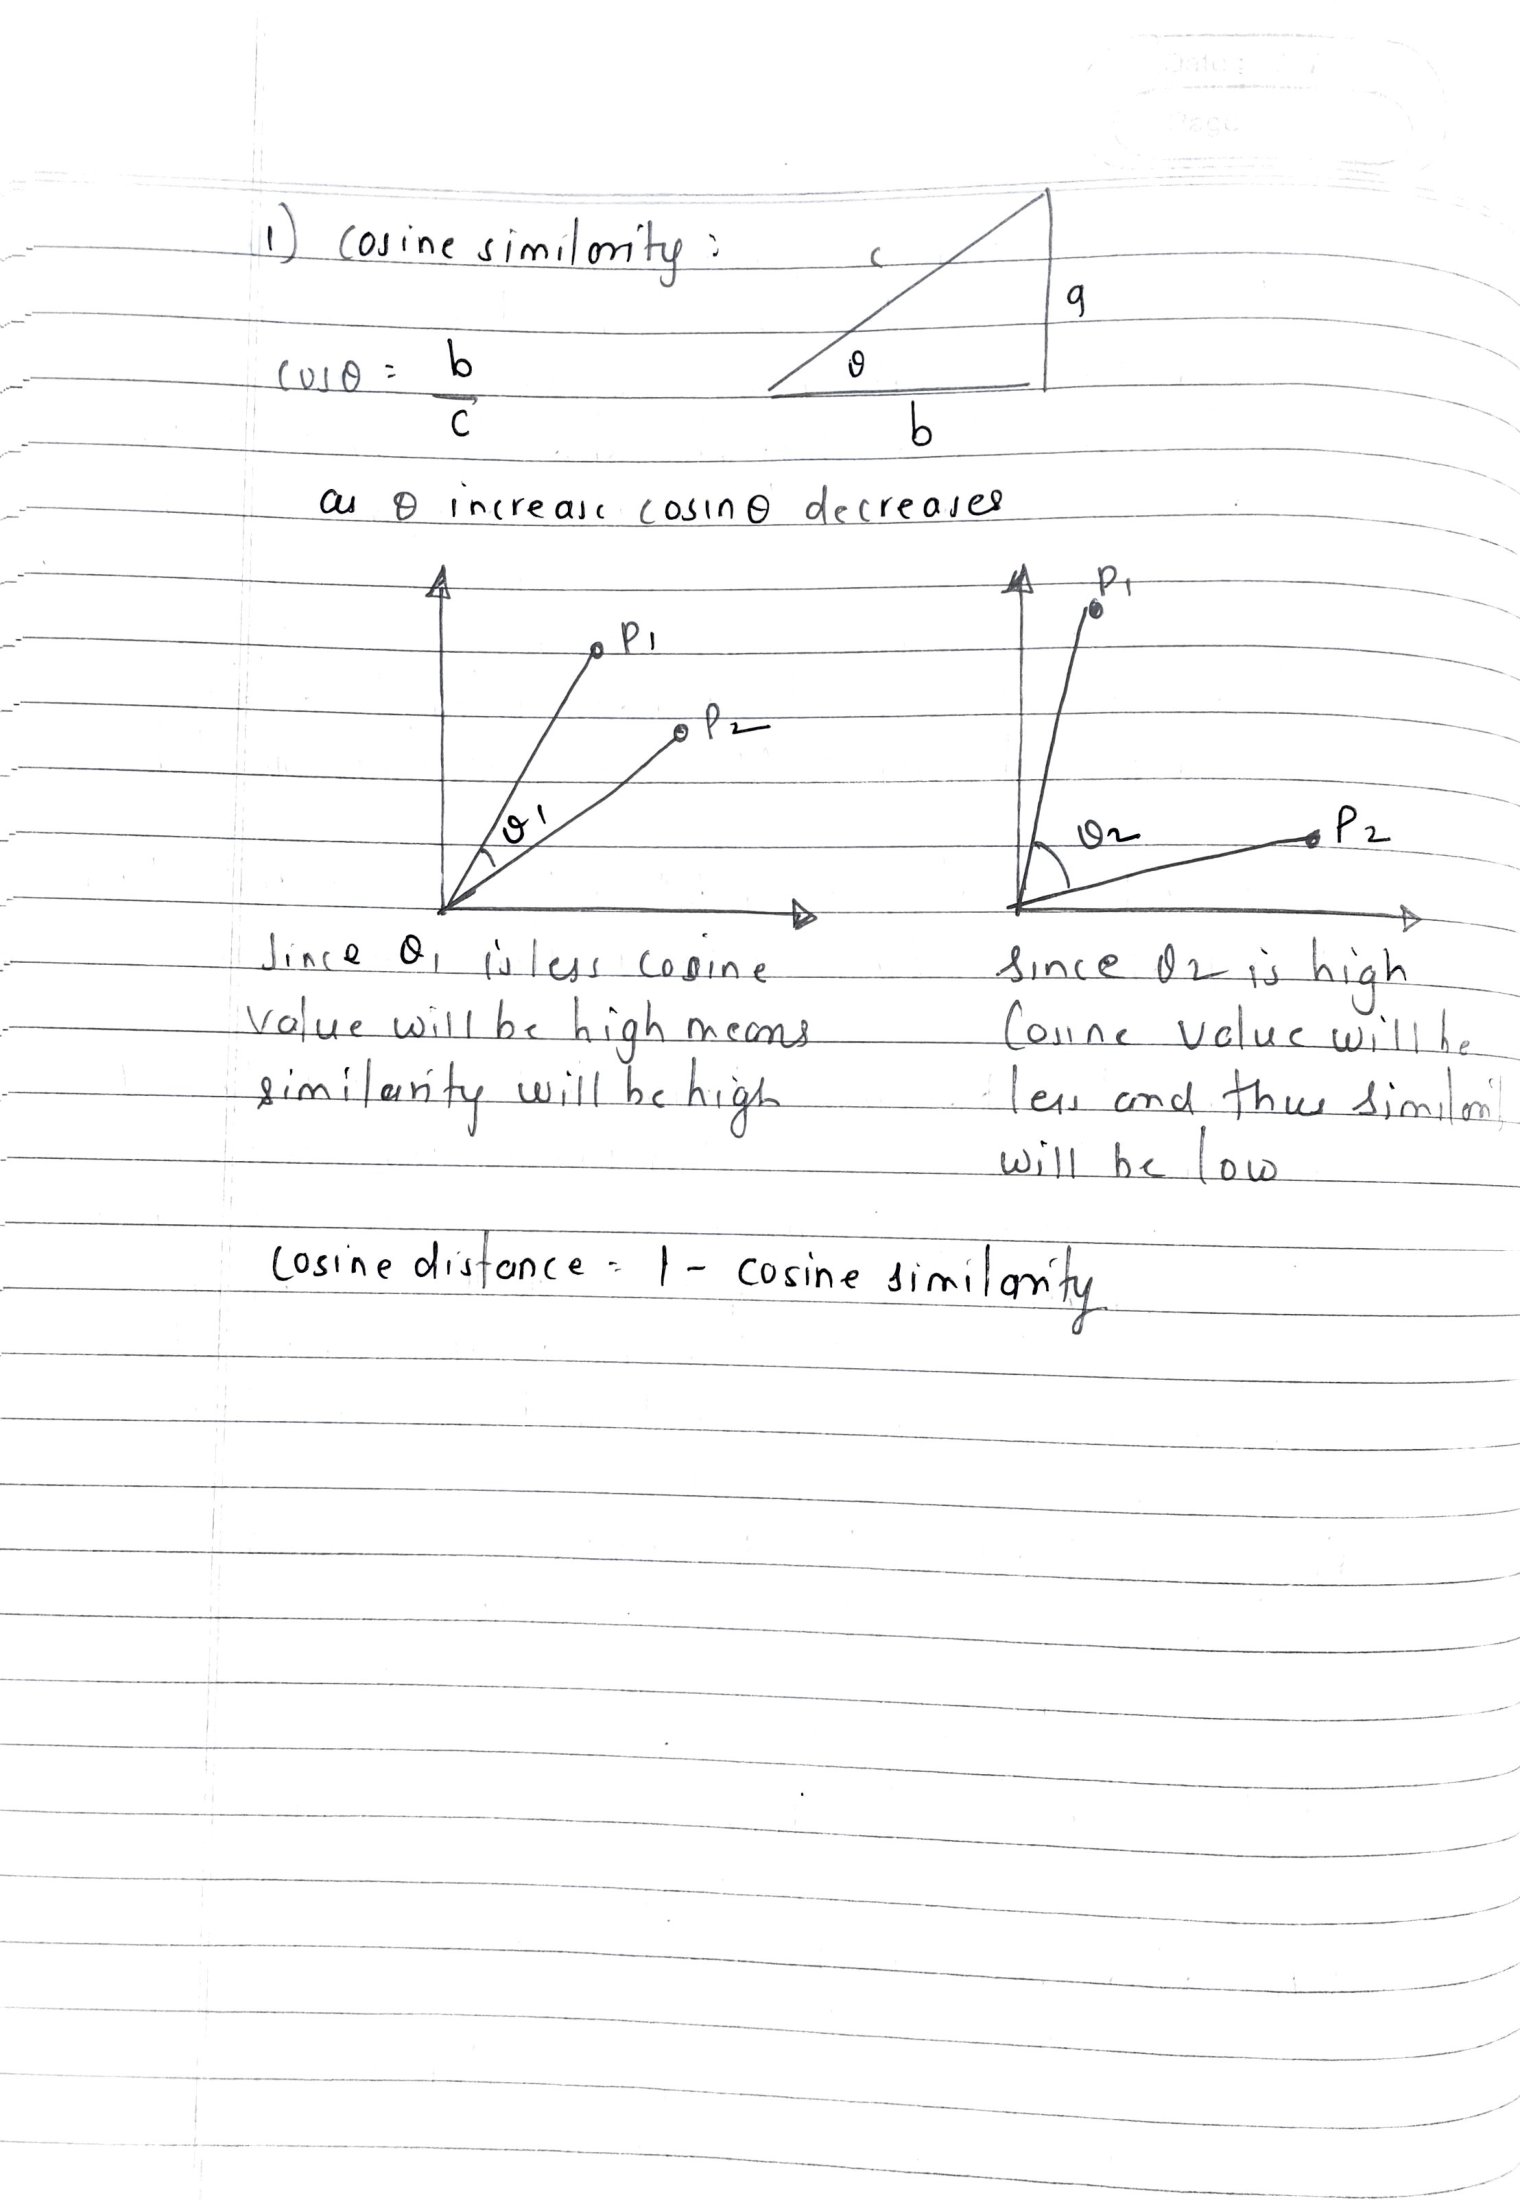 Date :
Page
1) cosine similarity :
c
a
cosθ = b
c
θ
b
as θ increase cosinθ decreases
P1
P1
P2
θ1
θ2
P2
Since θ1 is less cosine
value will be high means
similarity will be high
since θ2 is high
Cosine value will be
less and thus
will be low
cosine distance = 1 - cosine similarity